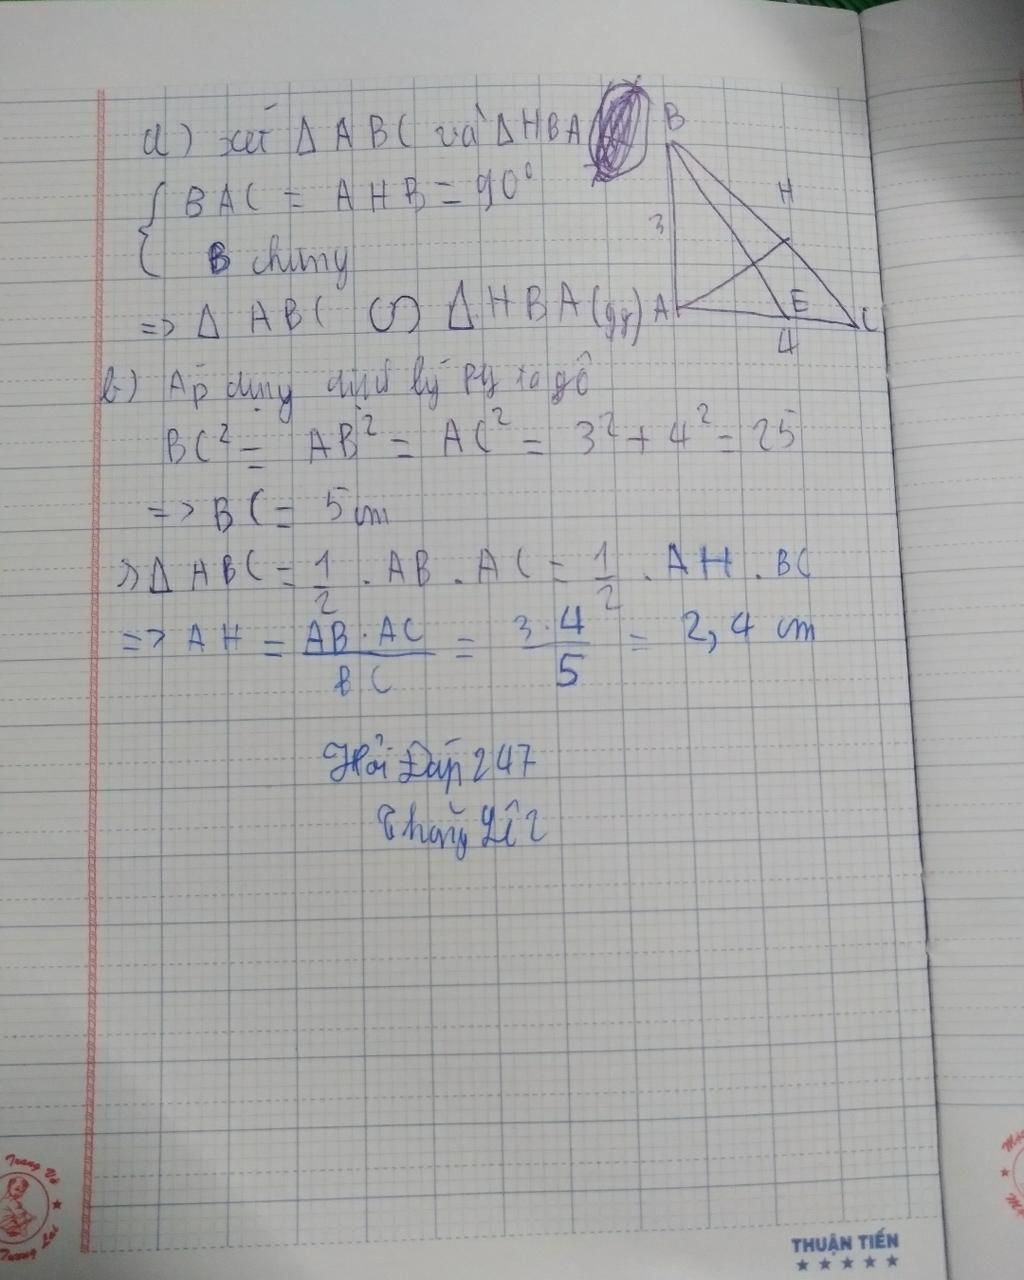 a) xét Δ ABC và Δ HBA
BAC = AHB = 90°
B chung
=> Δ ABC ∽ Δ HBA (gg)
B
H
3
A
E
C
4
b) Áp dụng định lý Py ta gô
BC² = AB² = AC² = 3² + 4² = 25
=> BC = 5 cm
Δ ABC = 1/2 . AB . AC = 1/2 . AH . BC
=> AH = AB.AC/BC = 3.4/5 = 2,4 cm
Hỏi Đáp 247
Trang Vở
Tương Lai
THUẬN TIẾN